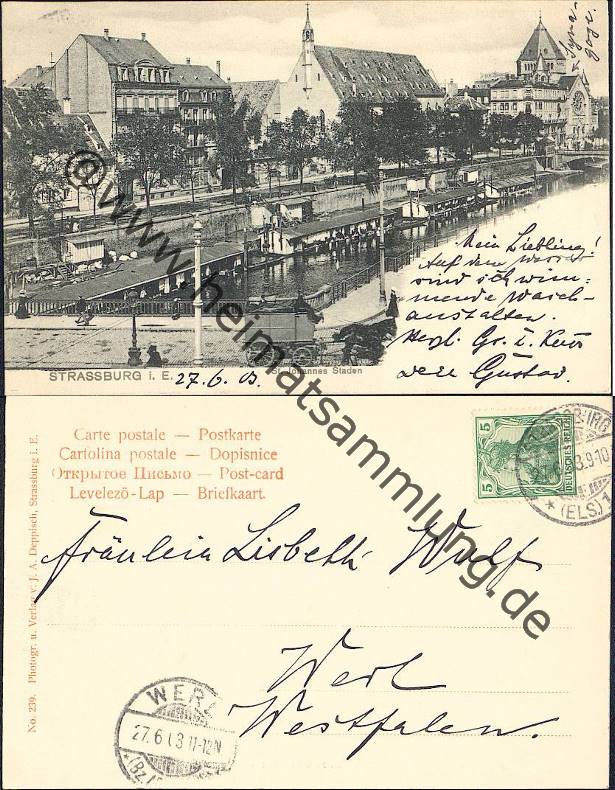 ← Syna-
goge.
Mein Liebling!
Auf dem Wasser
sind schwim-
mende Wasch-
anstalten.
Herzl. Gr. u. Kuss
Gustav.
STRASSBURG i. E.
27.6.03.
St. Johannes Staden
© www.heimatsammlung.de
Carte postale — Postkarte
Cartolina postale — Dopisnice
Открытое Письмо — Post-card
Levelező-Lap — Briefkaart.
5
5
DEUTSCHES REICH
(ELS.) 1
Fräulein Lisbeth Wulf
Werl
Westfalen.
WERL
27.6.03 11-12N
No. 239. Photogr. u. Verlag v. J. A. Deppisch, Strassburg i. E.